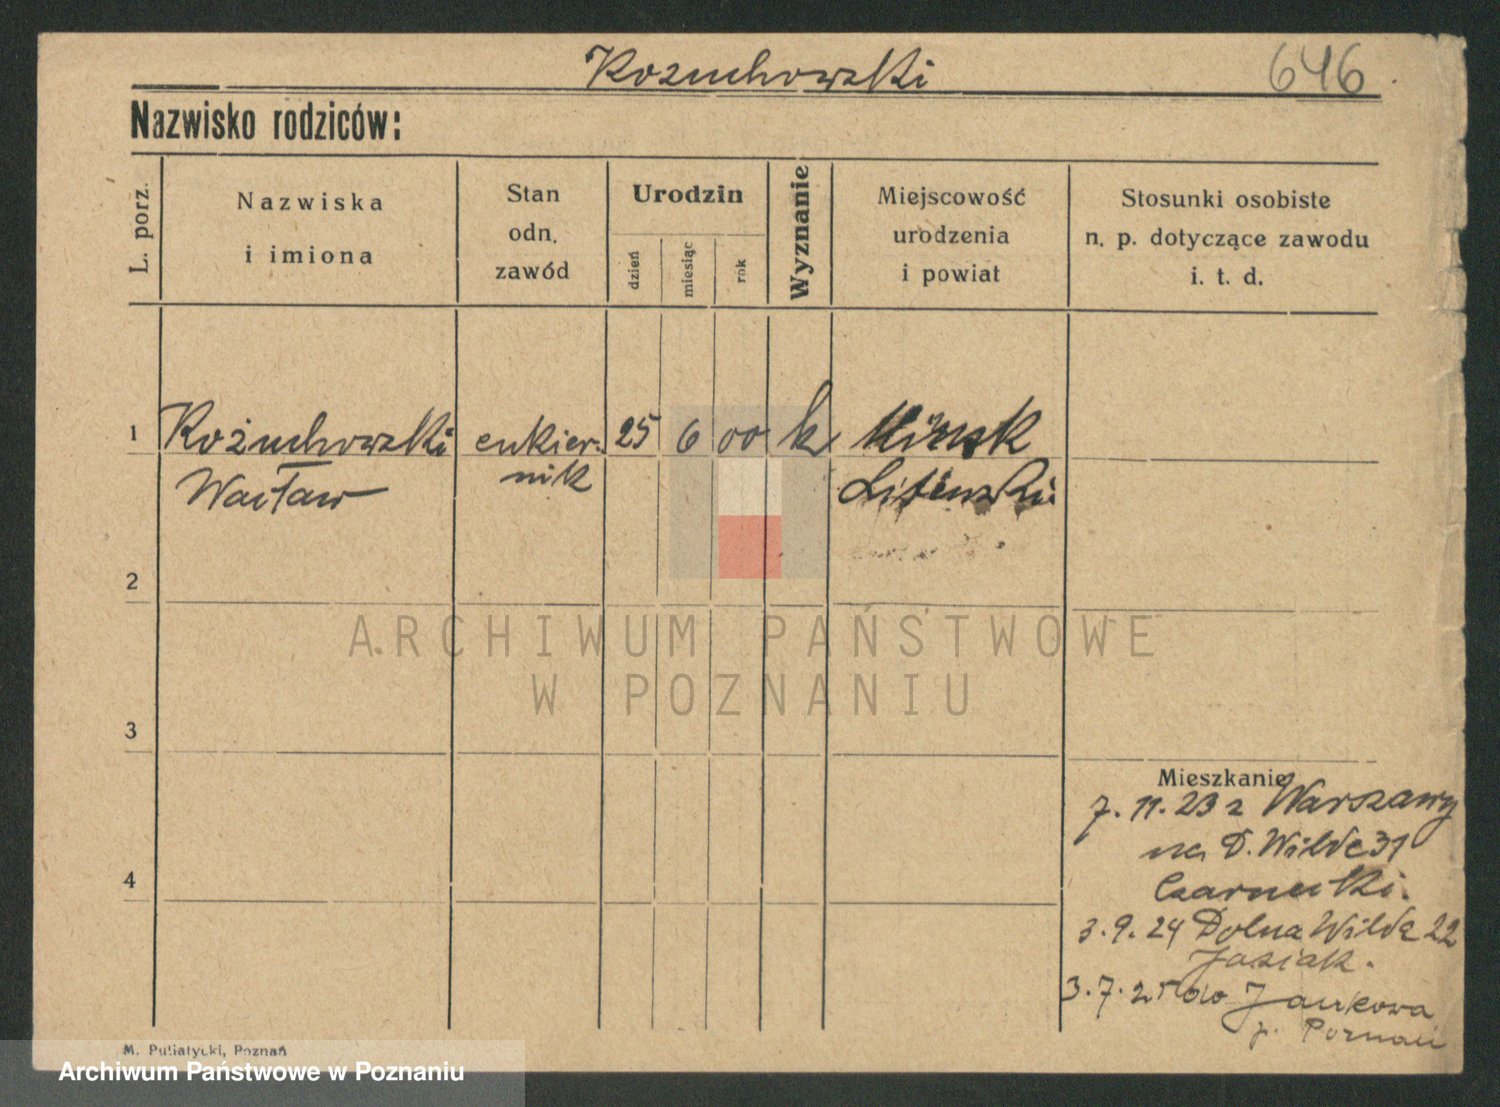 Kozuchowski
646
Nazwisko rodziców:
L. porz.
Nazwiska
i imiona
Stan
odn.
zawód
Urodzin
dzień
miesiąc
rok
Wyznanie
Miejscowość
urodzenia
i powiat
Stosunki osobiste
n. p. dotyczące zawodu
i. t. d.
1
Kożuchowski
Wacław
cukier-
nik
25
6
00
k
Mińsk
Litewski
2
ARCHIWUM PAŃSTWOWE
W POZNANIU
3
4
Mieszkanie
7. 11. 23 z Warszawy
na D. Wilde 31
Czarnecki.
3. 9. 24 Dolna Wilda 22
Jasiak.
3. 7. 25 do Jankowa
p. Poznań
M. Puliatycki, Poznań
Archiwum Państwowe w Poznaniu